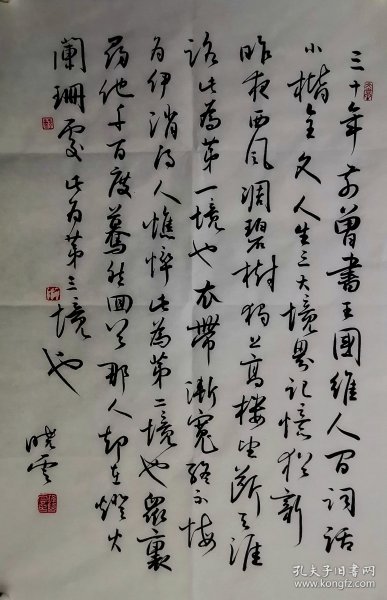 三十年前曾書王國維人间词话
小楷全文人生三大境界记憶猶新
昨夜西风凋碧樹独上高楼望断天涯
路此為第一境也衣帶漸寬終不悔
为伊消得人憔悴此為第二境也眾裏
尋他千百度蓦然回首那人却在燈火
闌珊處此为第三境也
晓雲
孔夫子旧書网
www.kongfz.com